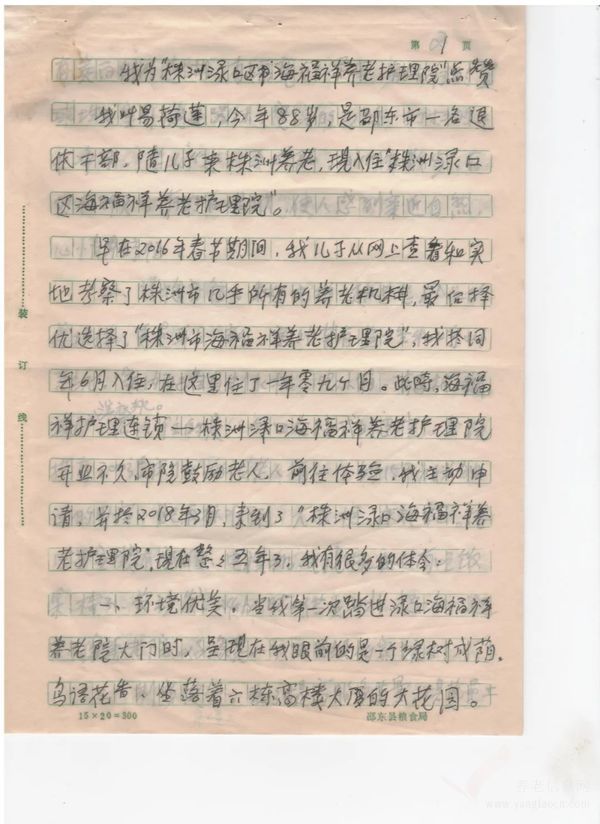 第 01 页
我为"株洲渌口区市海福祥养老护理院"点赞
我叫易揞莲，今年88岁，是邵东市一名退
休干部，随儿子来株洲养老，现入住"株洲渌口
区海福祥养老护理院"。
早在2016年春节期间，我儿子从网上查看和实
地考察了株洲市几乎所有的养老机构，最后择
优选择了"株洲市海福祥养老护理院"，我于同
年6月入住，在这里住了一年零九个月。此时，海福
祥护理连锁一株洲渌口海福祥养老护理院
开业不久，市院鼓励老人，前往体验，我主动申
请，并于2018年3月，来到了"株洲渌口海福祥养
老护理院"，现在整整五年了，我有很多的体会：
一、环境优美，当我第一次踏进渌口海福祥
养老院大门时，呈现在我眼前的是一个绿树成荫，
鸟语花香，坐落着六栋高楼大厦的大花园。
装
订
线
15×20=300
邵东县粮食局
养老信息网
www.yanglaocn.com